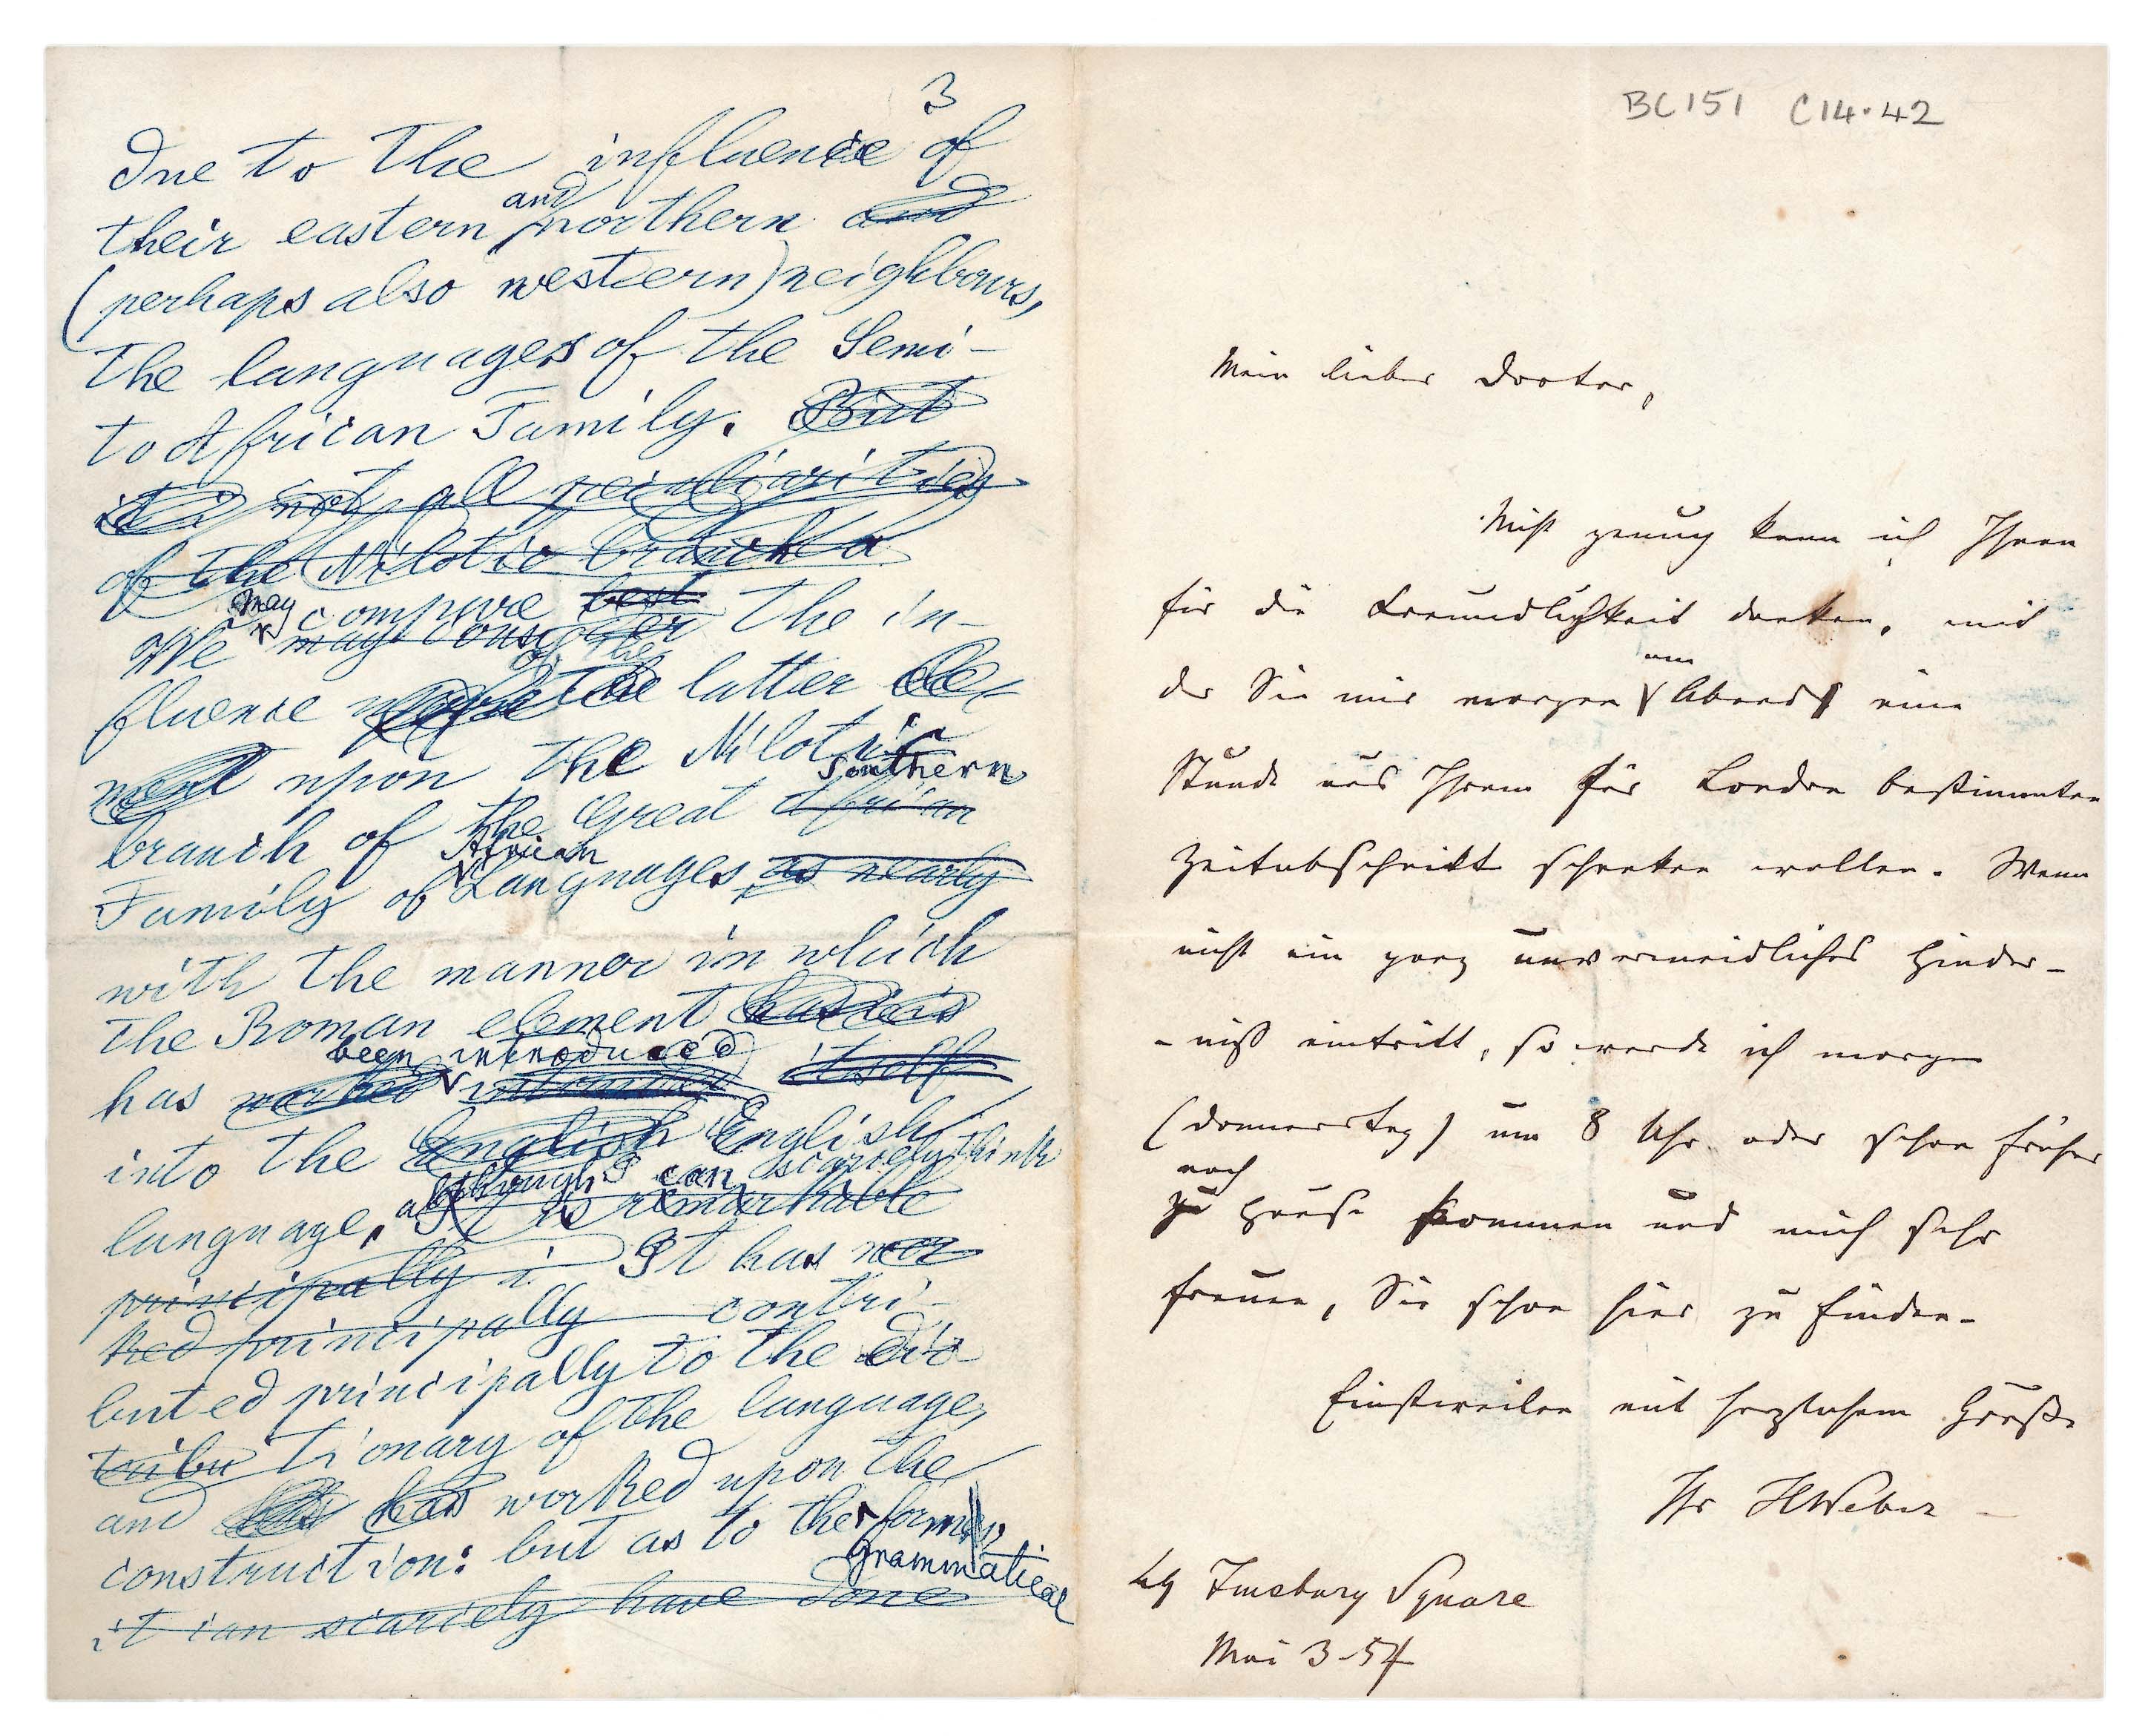 3
due to the influence of
their eastern and northern and
(perhaps also western) neighbours,
the languages of the Semi-
to African Family. But
it is not all peculiarities
of the Nilotic branch a
may compare best the in-
We may consider
of the
fluence the latter
upon the Nilotic
Southern
branch of the great African
African
Family of Languages as nearly
with the manner in which
the Roman element has its
been introduced
has worked itself
into the English English
although I can scarcely think
language. It is remarkable
principally i It has wor
ked principally contri-
buted principally to the dic
tribu tionary of the language,
and has has worked upon the
construction: but as to the forms,
grammatical
it can scarcely have done
BC151 C14.42
Mein lieber Doctor,
Nicht genug kann ich Ihnen
für die Freundlichkeit danken, mit
am
der Sie mir morgen Abend eine
Stunde aus Ihrem für London bestimmten
Zeitabschnitt schenken wollen. Wenn
nicht ein ganz unvermeidliches Hinder-
-niß eintritt, so werde ich morgen
(Donnerstag) um 8 Uhr oder schon früher
nach
zu Hause kommen und mich sehr
freuen, Sie schon hier zu finden.
Einstweilen mit herzlichem Gruße
Ihr HWeber
49 Finsbury Square
Mai 3 54